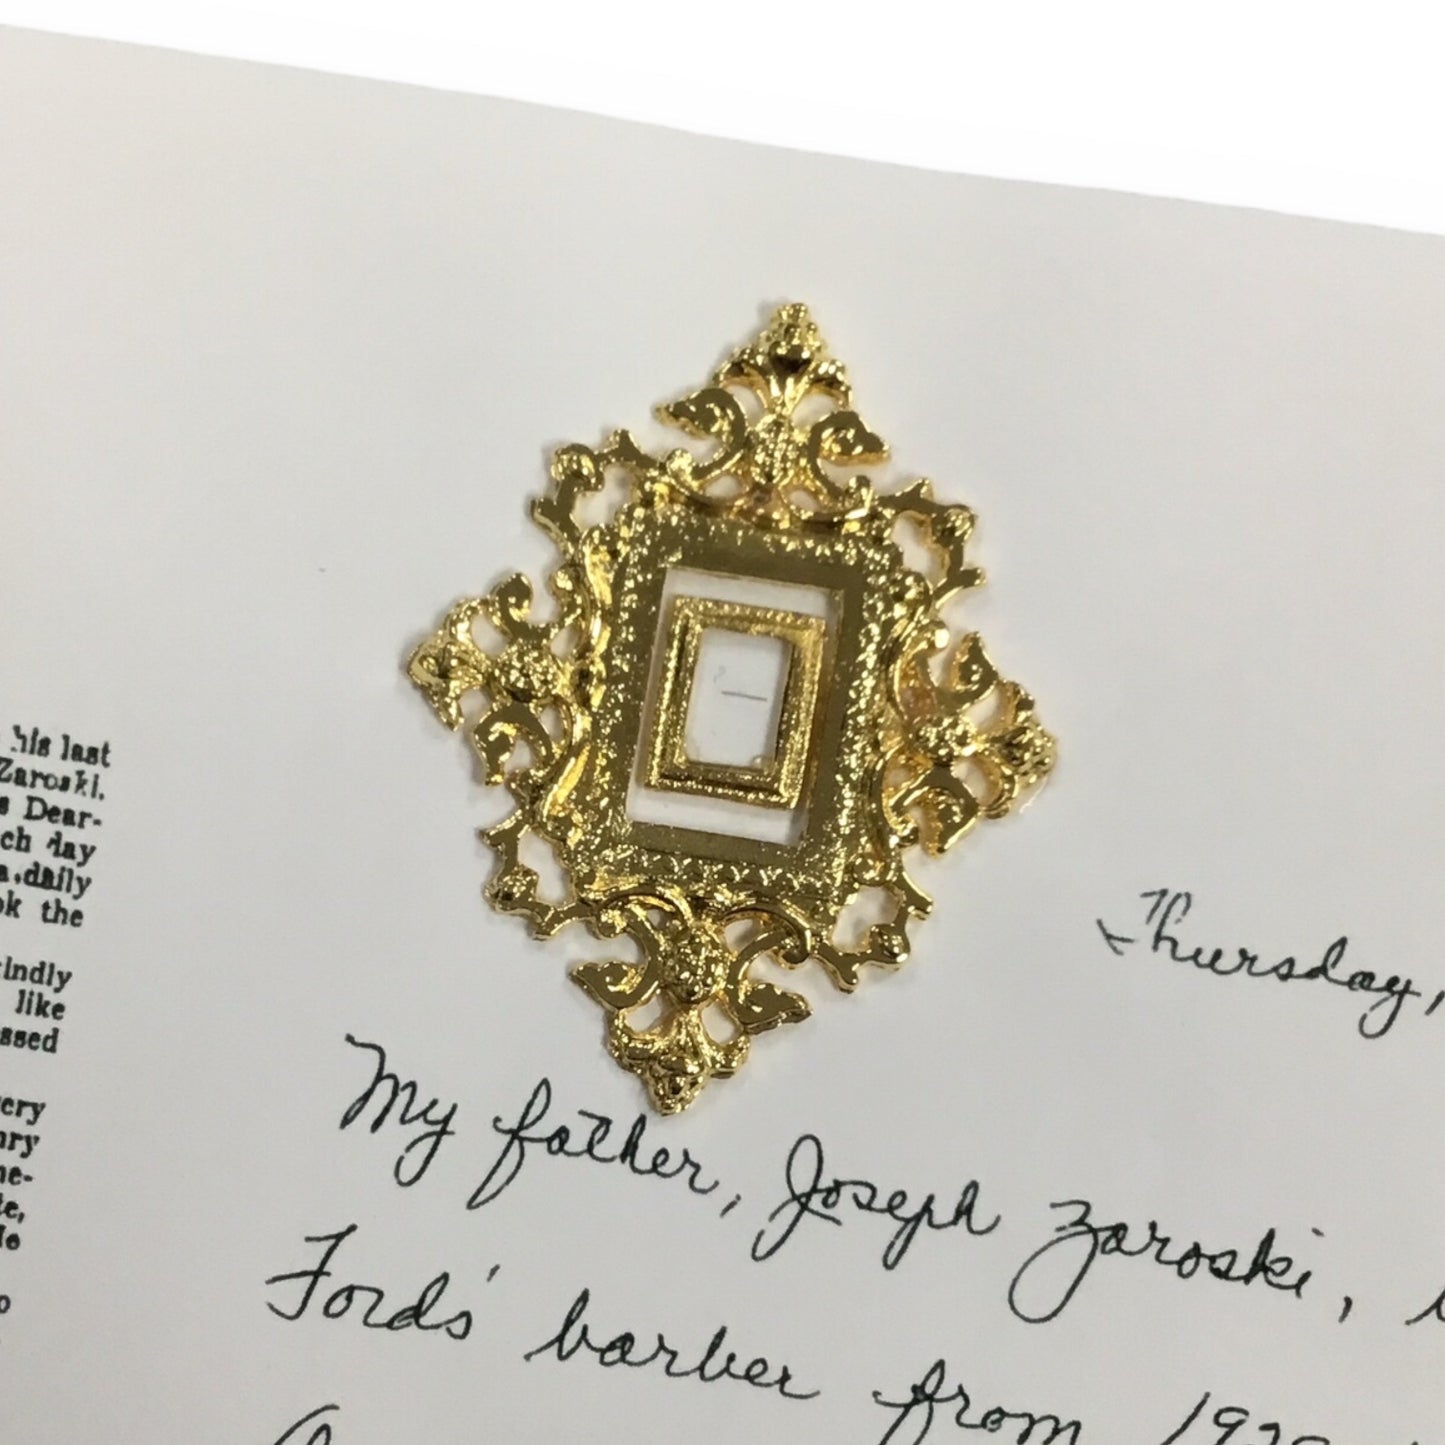 his last
Zaroski.
Dear-
ch day
daily
ok the
kindly
like
ssed
ery
nry
Thursday,
My father, Joseph Zaroski,
Ford's barber from